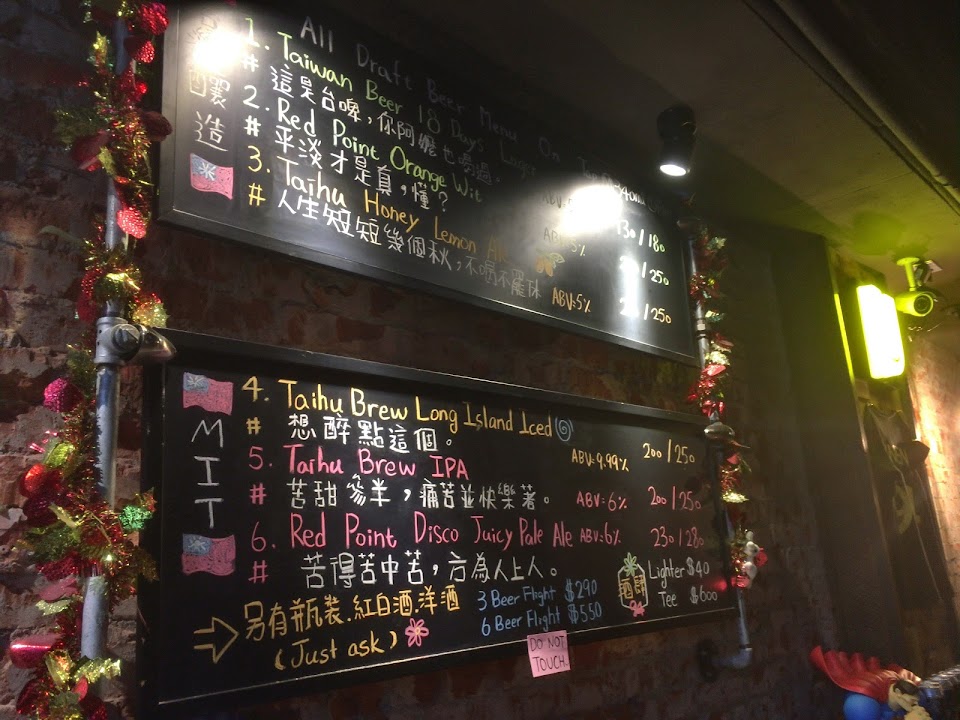 All Draft Beer Menu On
1. Taiwan Beer 18 Days Lager
# 這是台啤，你阿嬤也喝過。
130/180
2. Red Point Orange Wit
# 平淡才是真，懂？
ABV:5%
/250
3. Taihu Honey Lemon Ale
# 人生短短幾個秋，不喝不罷休
ABV:5%
/250
釀造
MIT
4. Taihu Brew Long Island Iced
# 想醉點這個。
ABV:9.99% 200/250
5. Taihu Brew IPA
# 苦甜參半，痛苦並快樂著。 ABV:6% 200/250
6. Red Point Disco Juicy Pale Ale ABV:6% 230/280
# 苦得苦中苦，方為人上人。
另有瓶裝.紅白酒.洋酒
(Just ask)
3 Beer Flight $290
6 Beer Flight $550
Lighter $40
Tee $600
DO NOT
TOUCH.